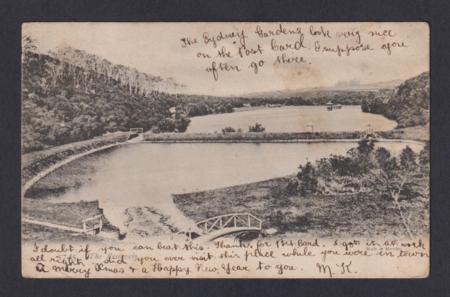 The Sydney Gardens look very nice
on the Post Card. I suppose you
often go there.
I doubt if you can beat this. Thanks for Post Card. I got it at work
all right, did you ever visit this place while you were in town
A merry Xmas & a Happy New Year to you. M. K.